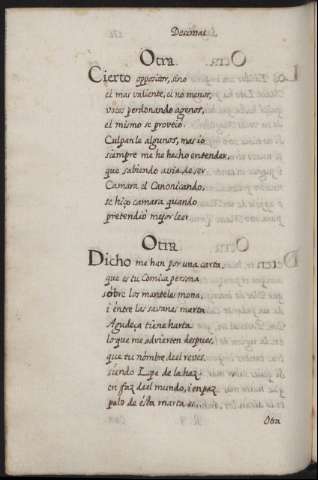 Decimas
Otra
Cierto opositor, sino
el mas valiente, el no menor,
vicios perdonando agenos,
el mismo se proveió.
Culpanle algunos, mas io
siempre me he hecho entender,
que sabiendo auia de ser
Camara el Canonicando,
se hizo camara quando
pretendió mejor leer.
Otra
Dicho me han por una carta,
que es tu Comica persona
sobre los manteles mona,
i éntre las sauanas marta
Agudeça tiene harta
lo que me advierten despues,
que tu nombre de el reves,
siendo Lope de la haz
en faz de el mundo, i en paz
pelo de ésta marta es.
Otra